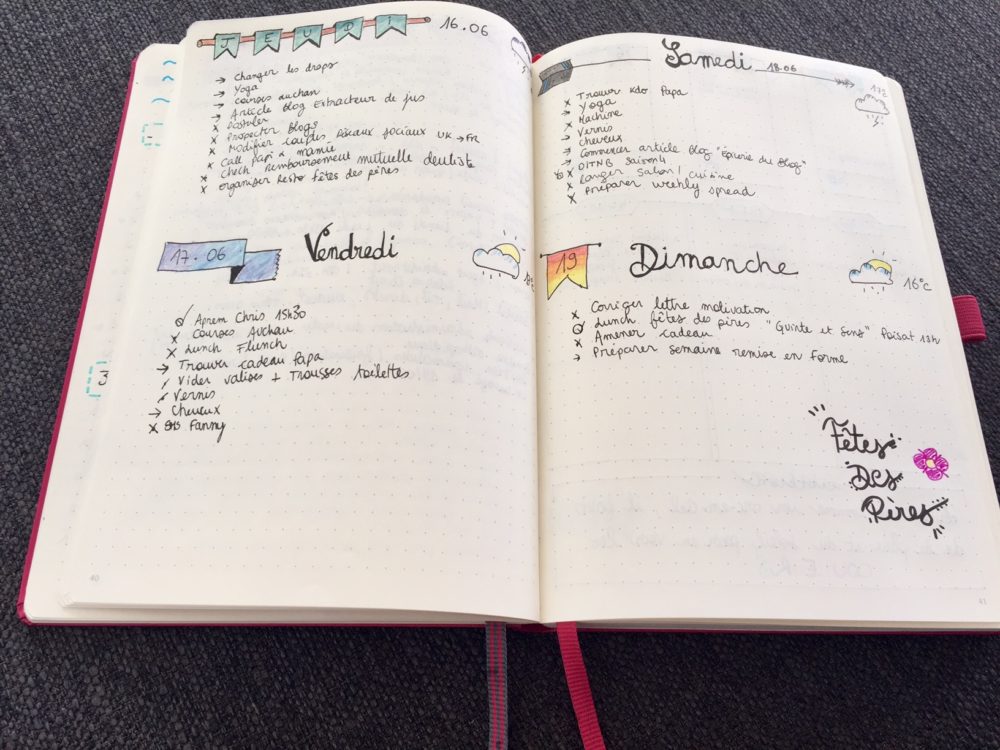 JEUDI 16.06
→ Changer les draps
→ Yoga
→ Courses auchan
→ Article Blog Extracteur de jus
x Postuler
x Prospecter Blogs
x Modifier comptes réseaux sociaux UK → FR
x Call papi & mamie
x Check Remboursement mutuelle dentiste
x organiser Resto fêtes des pères
17.06 Vendredi
Aprem Chris 15h30
x Courses Auchan
x Lunch Flunch
→ Trouver cadeau Papa
/ Vider valises + Trousses toilettes
x Vernis
→ Cheveux
x SMS Fanny
3
40
Samedi 18.06
17°c
x Trouver kdo Papa
x Yoga
→ Machine
x Vernis
→ Cheveux
→ Commencer article Blog "Épicerie du Blog"
→ OITNB Saison 4
x Ranger Salon / cuisine
x Préparer weekly spread
19 Dimanche
16°c
x Corriger lettre motivation
Lunch fêtes des pères "Guinte et Sens" Paisat 13h
x Amener cadeau
→ Préparer semaine remise en forme
Fêtes
Des
Pères
41